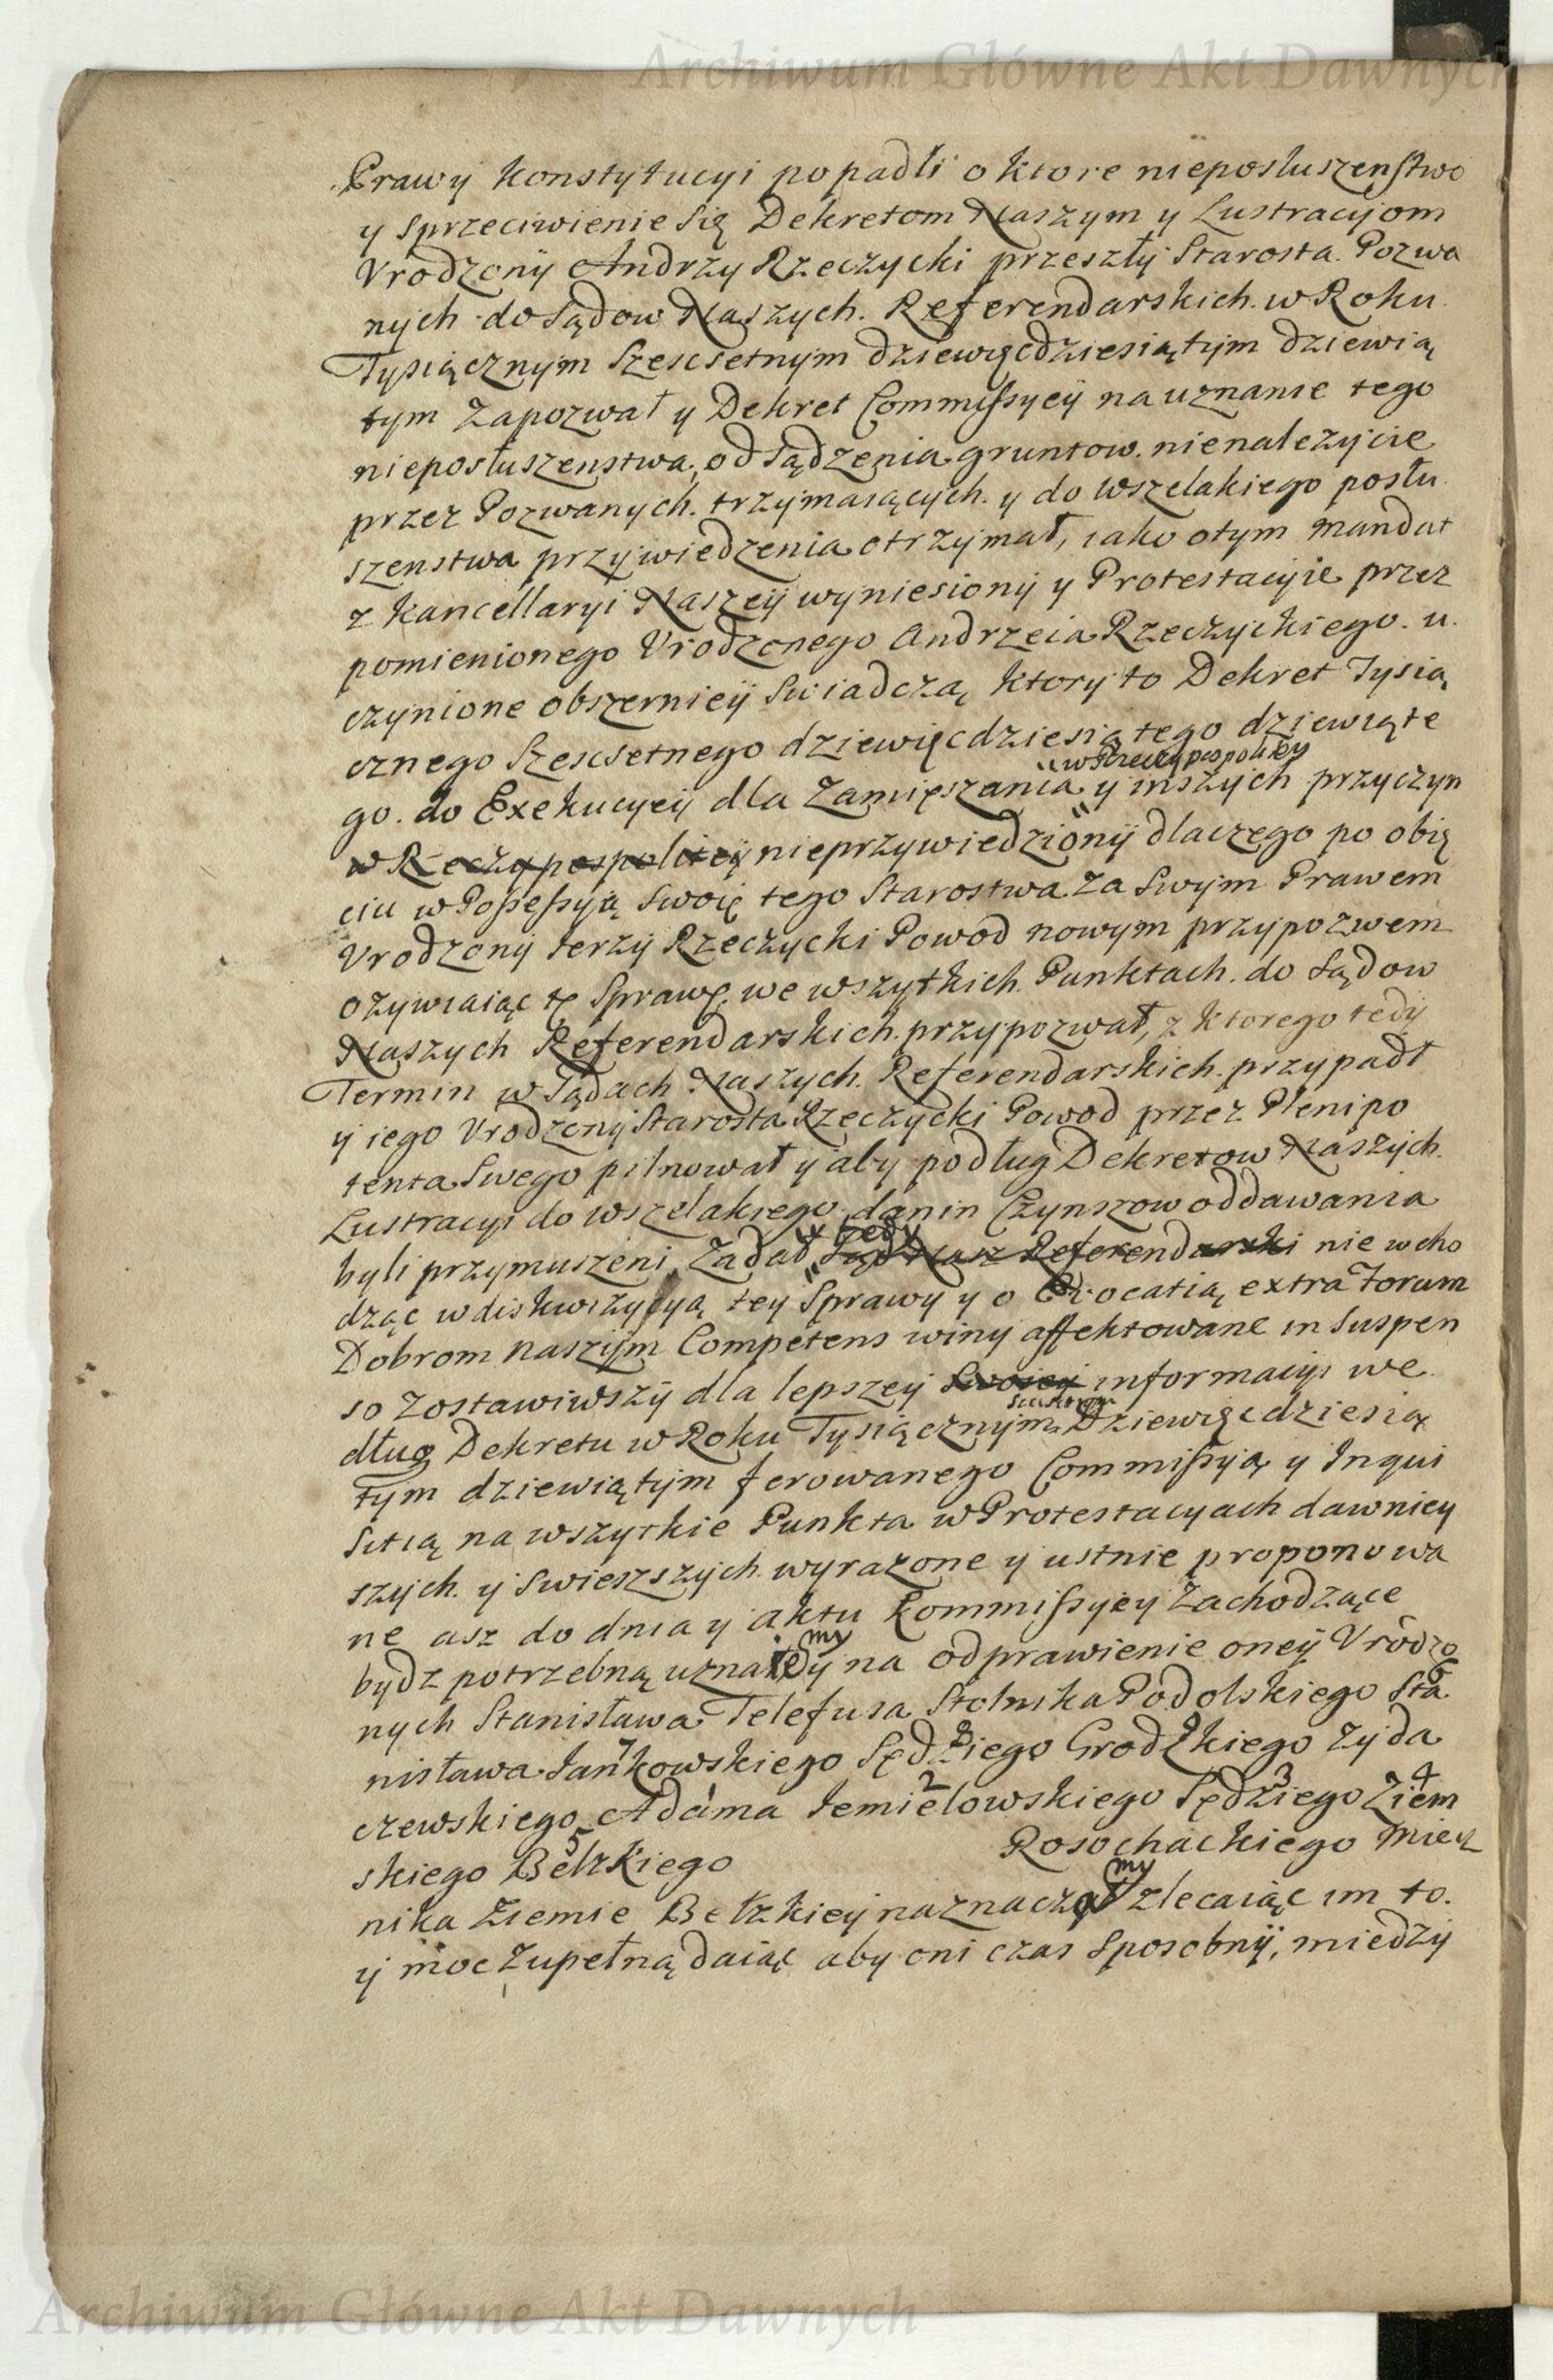 Archiwum Główne Akt Dawnych
Prawy konstytucyi popadli o ktore nieposłuszenstwo
y sprzeciwienie się Dekretom Naszym y Lustracyjom
Vrodzony Andrzy Rzeczycki przeszły Starosta. Pozwa
nych do Sądow Naszych. Referendarskich. w Roku
Tysiącznym Szescsetnym dziewięcdziesiątym dziewią
tym Zapozwał y Dekret Commissyey na uznanie tego
nieposłuszenstwa, odsądzenia gruntow. nienalezycie
przez Pozwanych. trzymaiących. y do wszelakiego posłu
szenstwa przywiedzenia otrzymał, iako otym Mandat
z Kancellaryi Naszey wyniesiony y Protestacyie przez
pomienionego Vrodzonego Andrzeia Rzeczyckiego. u.
czynione obszerniey swiadczą, ktory to Dekret Tysią
cznego Szescsetnego dziewięcdziesiątego dziewiąte
w Rzeczypospolitey
go. do Exekucyey dla Zamięszania y inszych przyczyn
w Rzeczypospolitey nieprzywiedziony dlaczego po obię
ciu w Possessyą swoię tego Starostwa za swym Prawem
Vrodzony Ierzy Rzeczycki Powod nowym przypozwem
ozywiaiąc tę Sprawę. we wszytkich. Punktach. do Sądow
Naszych Referendarskich. przypozwał, z ktorego tedy
Termin w Sądach Naszych. Referendarskich. przypadł
y iego Vrodzony Starosta Rzeczycki Powod przez Plenipo
tenta swego pilnował y aby podług Dekretow Naszych.
Lustracyi do wszelakiego danin Czynszow oddawania
tedy
byli przymuszeni, Ządał Sąd Nasz Referendarski nie wcho
dząc w diskwizycyą tey Sprawy y o Evocatią extra Forum
Dobrom naszym Competens winy affektowane in suspen
so zostawiwszy dla lepszey swoiey informacyi we
dług Dekretu w Roku Tysiącznym Dziewięcdziesią
tym dziewiątym ferowanego Commissyą y Inqui
sitią na wszytkie Punkta w Protestacyach dawniey
szych. y swieszszych. wyrazone y ustnie proponowa
ne asz do dnia y aktu kommissyey zachodzące
my
bydz potrzebną uzna na odprawienie oney Vrodzo
nych Stanisława Telefusa Stolnika Podolskiego Sta 6
nisława Iankowskiego Sędziego Grodzkiego Zyda
7 8 9
czewskiego Adama Iemielowskiego Sędziego Ziem
1 2 3 4
skiego Bełzkiego Rosochackiego Miecz
5
my
nika Ziemie Bełzkiey naznacza zlecaiąc im to.
y moc zupełną daiąc aby oni czas sposobny, miedzy
Archiwum Główne Akt Dawnych